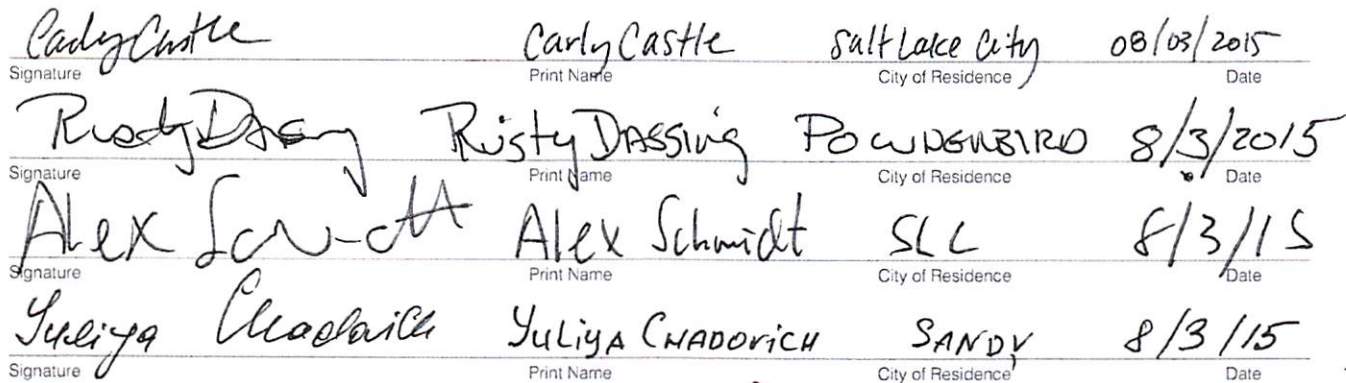 Carly Castle Carly Castle Salt Lake City 08/03/2015
Signature Print Name City of Residence Date
Rusty Dassing Rusty DASSING POWDERBIRD 8/3/2015
Signature Print Name City of Residence Date
Alex Schmidt Alex Schmidt SLC 8/3/15
Signature Print Name City of Residence Date
Yuliya Chadovich YuLiyA CHADOViCH SANDY 8/3/15
Signature Print Name City of Residence Date